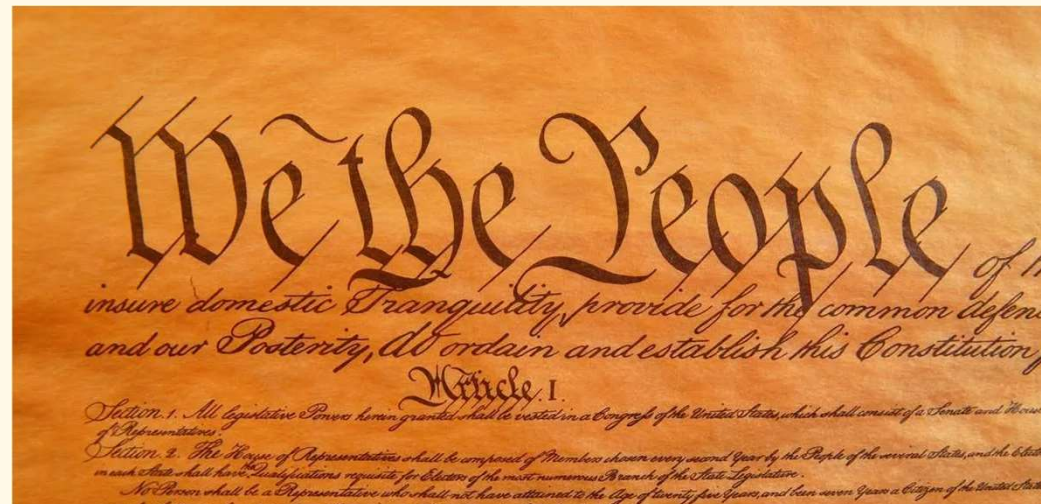 We the People of
insure domestic Tranquility, provide for the common defen
and our Posterity, do ordain and establish this Constitution
Article. I.
Section. 1. All legislative Powers herein granted shall be vested in a Congress of the United States, which shall consist of a Senate and House
of Representatives.
Section. 2. The House of Representatives shall be composed of Members chosen every second Year by the People of the several States, and the
in each State shall have the Qualifications requisite for Electors of the most numerous Branch of the State Legislature.
No Person shall be a Representative who shall not have attained to the Age of twenty five Years, and been seven Years a Citizen of the United